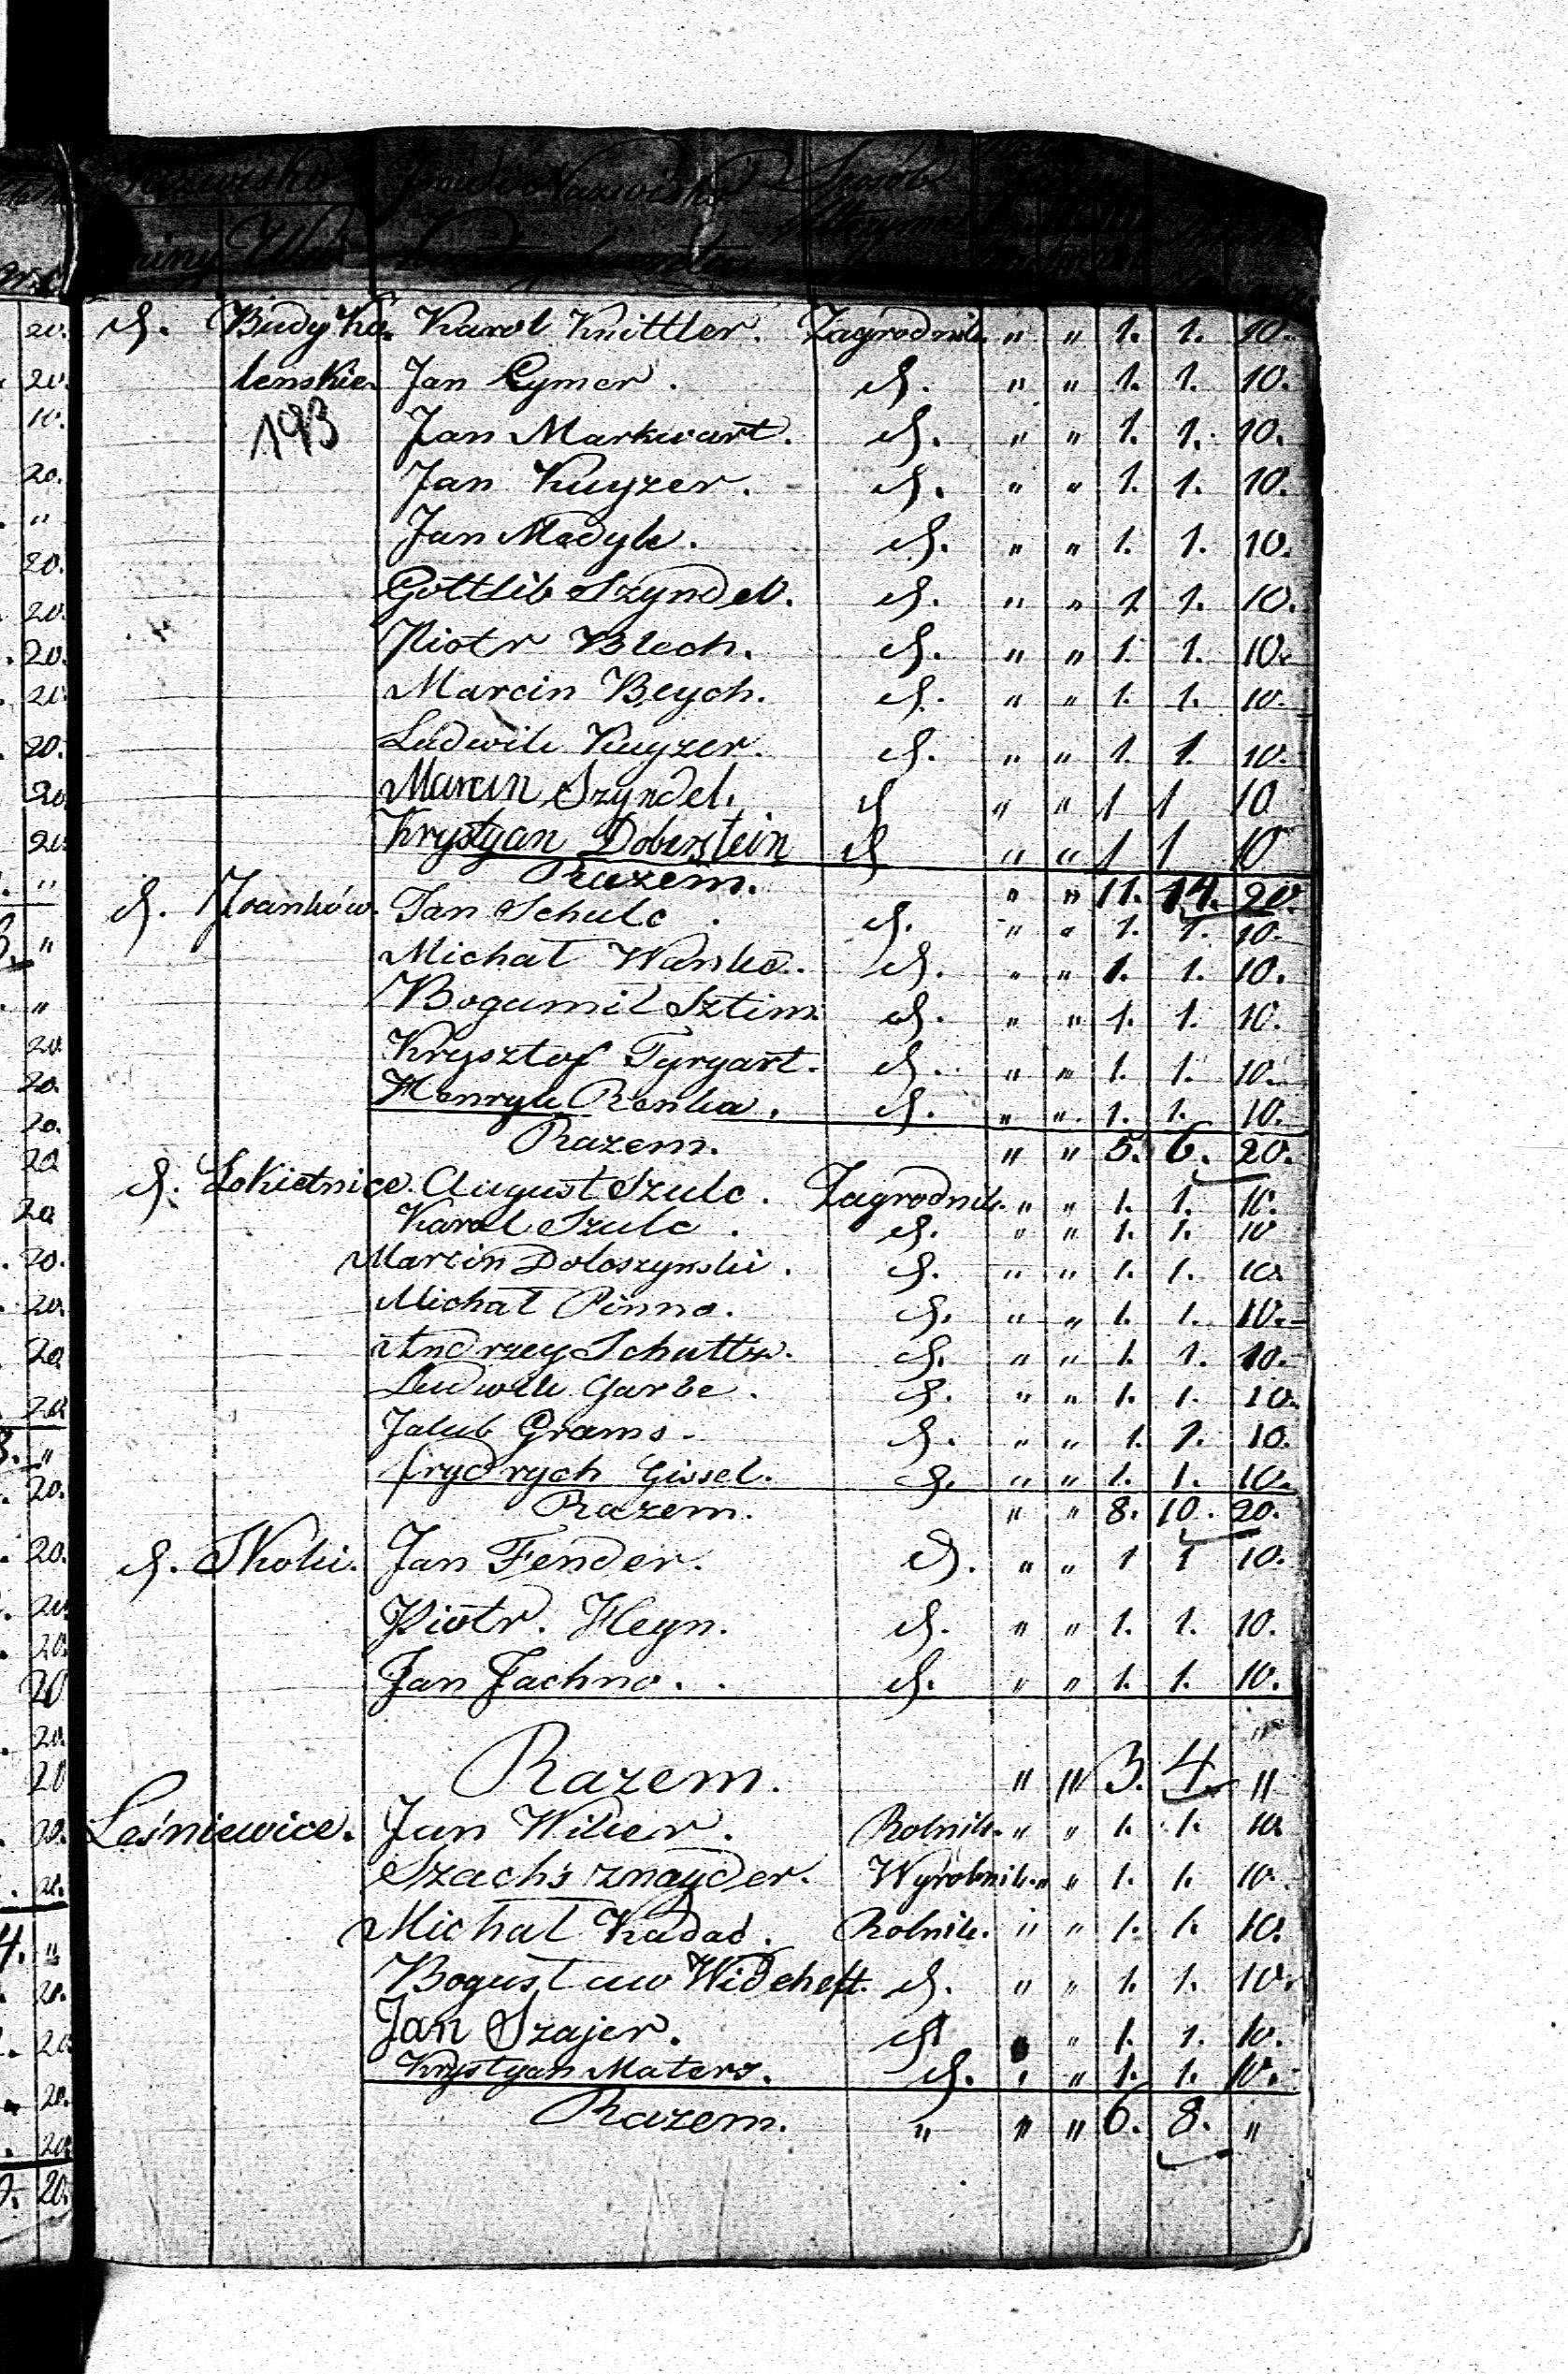 Nazwisko Imie i Nazwisko Sposób
Gminy Wsi
d. Budy Ka- Karol Knittler. Zagrodnik. " " 1. 1. 10.
lenskie. Jan Cymer. d. " " 1. 1. 10.
193 Jan Markwart. d. " " 1. 1. 10.
Jan Kuyzer. d. " " 1. 1. 10.
Jan Modyk. d. " " 1. 1. 10.
Gottlib Szyndel. d. " " 1 1. 10.
Piotr Blech. d. " " 1. 1. 10.
Marcin Beych. d. " " 1. 1. 10.
Ludwik Kuyzer. d. " " 1. 1. 10.
Marcin Szyndel. d " " 1 1 10
Krystyan Doberstein d " " 1 1 10
Razem. " " 11. 14. 20.
d. Joanków. Jan Schulc. d. " " 1. 1. 10.
Michał Wanke. d. " " 1. 1. 10.
Bogumił Sztim. d. " " 1. 1. 10.
Krysztof Tyrgart. d. " " 1. 1. 10.
Henryk Renka. d. " " 1. 1. 10.
Razem. " " 5. 6. 20.
d. Łokietnice. August Szulc. Zagrodnik. " " 1. 1. 10.
Karol Szulc. d. " " 1. 1. 10
Marcin Doloszynski. d. " " 1. 1. 10.
Michał Pinno. d. " " 1. 1. 10.
Andrzey Schultz. d. " " 1. 1. 10.
Ludwik Garbe. d. " " 1. 1. 10.
Jakub Grams. d. " " 1. 1. 10.
frydrych Gissel. d. " " 1. 1. 10.
Razem. " " 8. 10. 20.
d. Skoki. Jan Fender. d. " " 1 1 10.
Piotr. Heyn. d. " " 1. 1. 10.
Jan Jachno. d. " " 1. 1. 10.
Razem. " " 3. 4. "
Leśniewice. Jan Wilier. Rolnik. " " 1. 1. 10.
Szachsznayder. Wyrobnik. " " 1. 1. 10.
Michał Kadac. Rolnik. " " 1. 1. 10.
Bogusław Wideheft. d. " " 1. 1. 10.
Jan Szajer. d " 1. 1. 10.
Krystyan Matern. d. " " 1. 1. 10.
Razem. " " " 6. 8. "